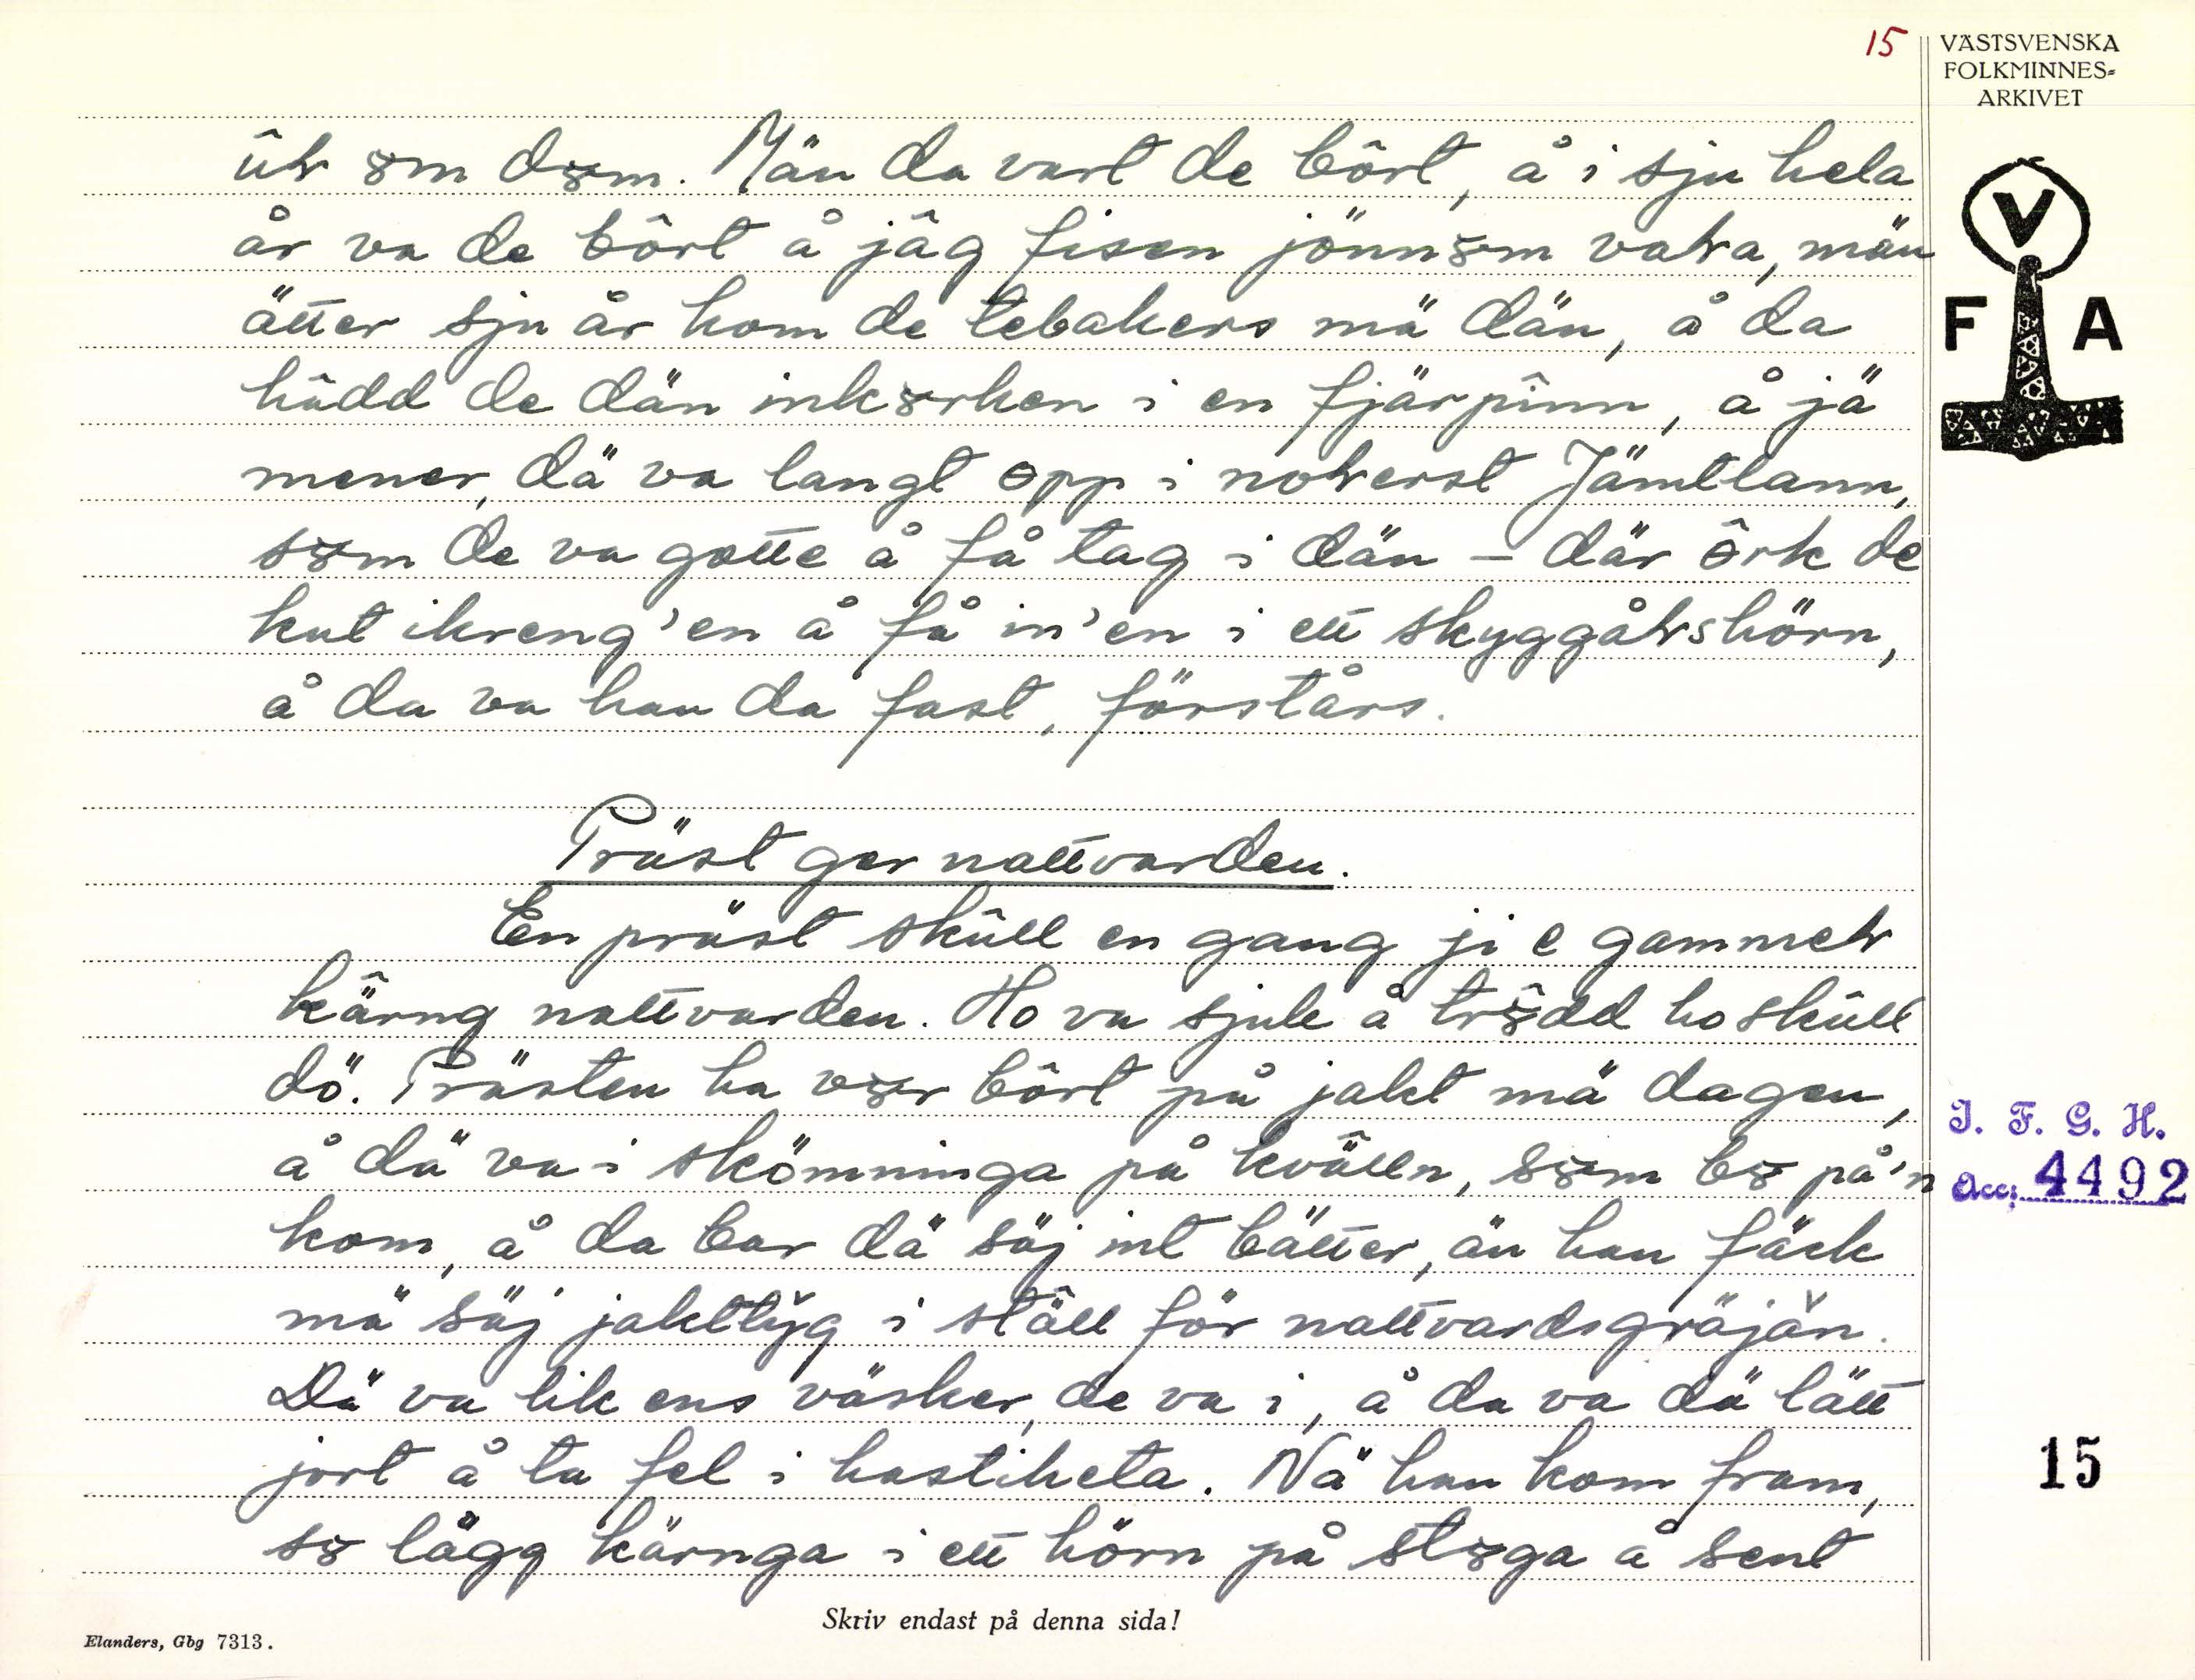 15
VÄSTSVENSKA
FOLKMINNES=
ARKIVET
V
F A
ûƚ ɞm dɞm. Män da vart de bôrt, å i sju hela
år va de bôrt å jâg fisen jönnɞm vaƚa, män
ätter sju år kom de tebakers mä dän, å da
hâdd de dän inkɞrken i en fjärpînn, å jä
mener, dä va langt ɵpp i noƚerst Jämtlann,
sɞm de va gɵtte å få tag i dän – där ɵ̂rk de
kut ikreng'en å få in'en i ett skyggåƚshörn,
å da va han da fast, förstårs.
Präst ger nattvarden.
En präst skûll en gang ji e gammeƚ
kärng nattvarden. Ho va sjuk å trɞ̂dd ho skûll
dö. Prästen ha vɞr bôrt på jakt mä dagen,
å dä va i skömninga på kvälln, sɞm bɞ på'n
kom, å da bar dä säj int bätter, än han fäck
mä säj jakttyg i ställ för nattvardsgräjăn.
Dä va lik ens väsker, de va i, å da va dä lätt
jort å ta fel i hastiheta. Nä han kom fram,
sɞ lågg kärnga i ett hörn på stɞga å sent
J. F. G. H.
Acc: 4492
15
Skriv endast på denna sida!
Elanders, Gbg 7313.